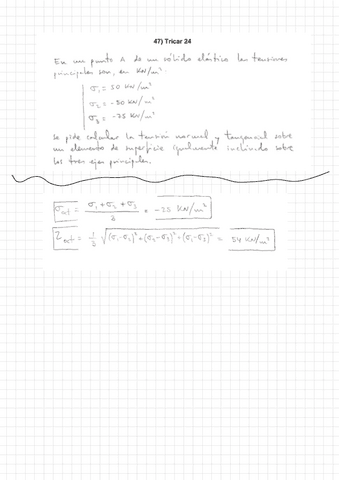 47) Tricar 24
En un punto A de un sólido elástico las tensiones
principales son, en KN/m²
σ₁ = 30 KN/m²
σ₂ = -50 KN/m²
σ₃ = -75 KN/m²
Se pide calcular la tensión normal y tangencial sobre
un elemento de superficie igualmente inclinado sobre
los tres ejes principales.
σoct = (σ₁+σ₂+σ₃)/3 = KN/m²
τoct = 1/3 √((σ₁-σ₂)²+(σ₂-σ₃)²+(σ₁-σ₃)²) = 54 KN/m²